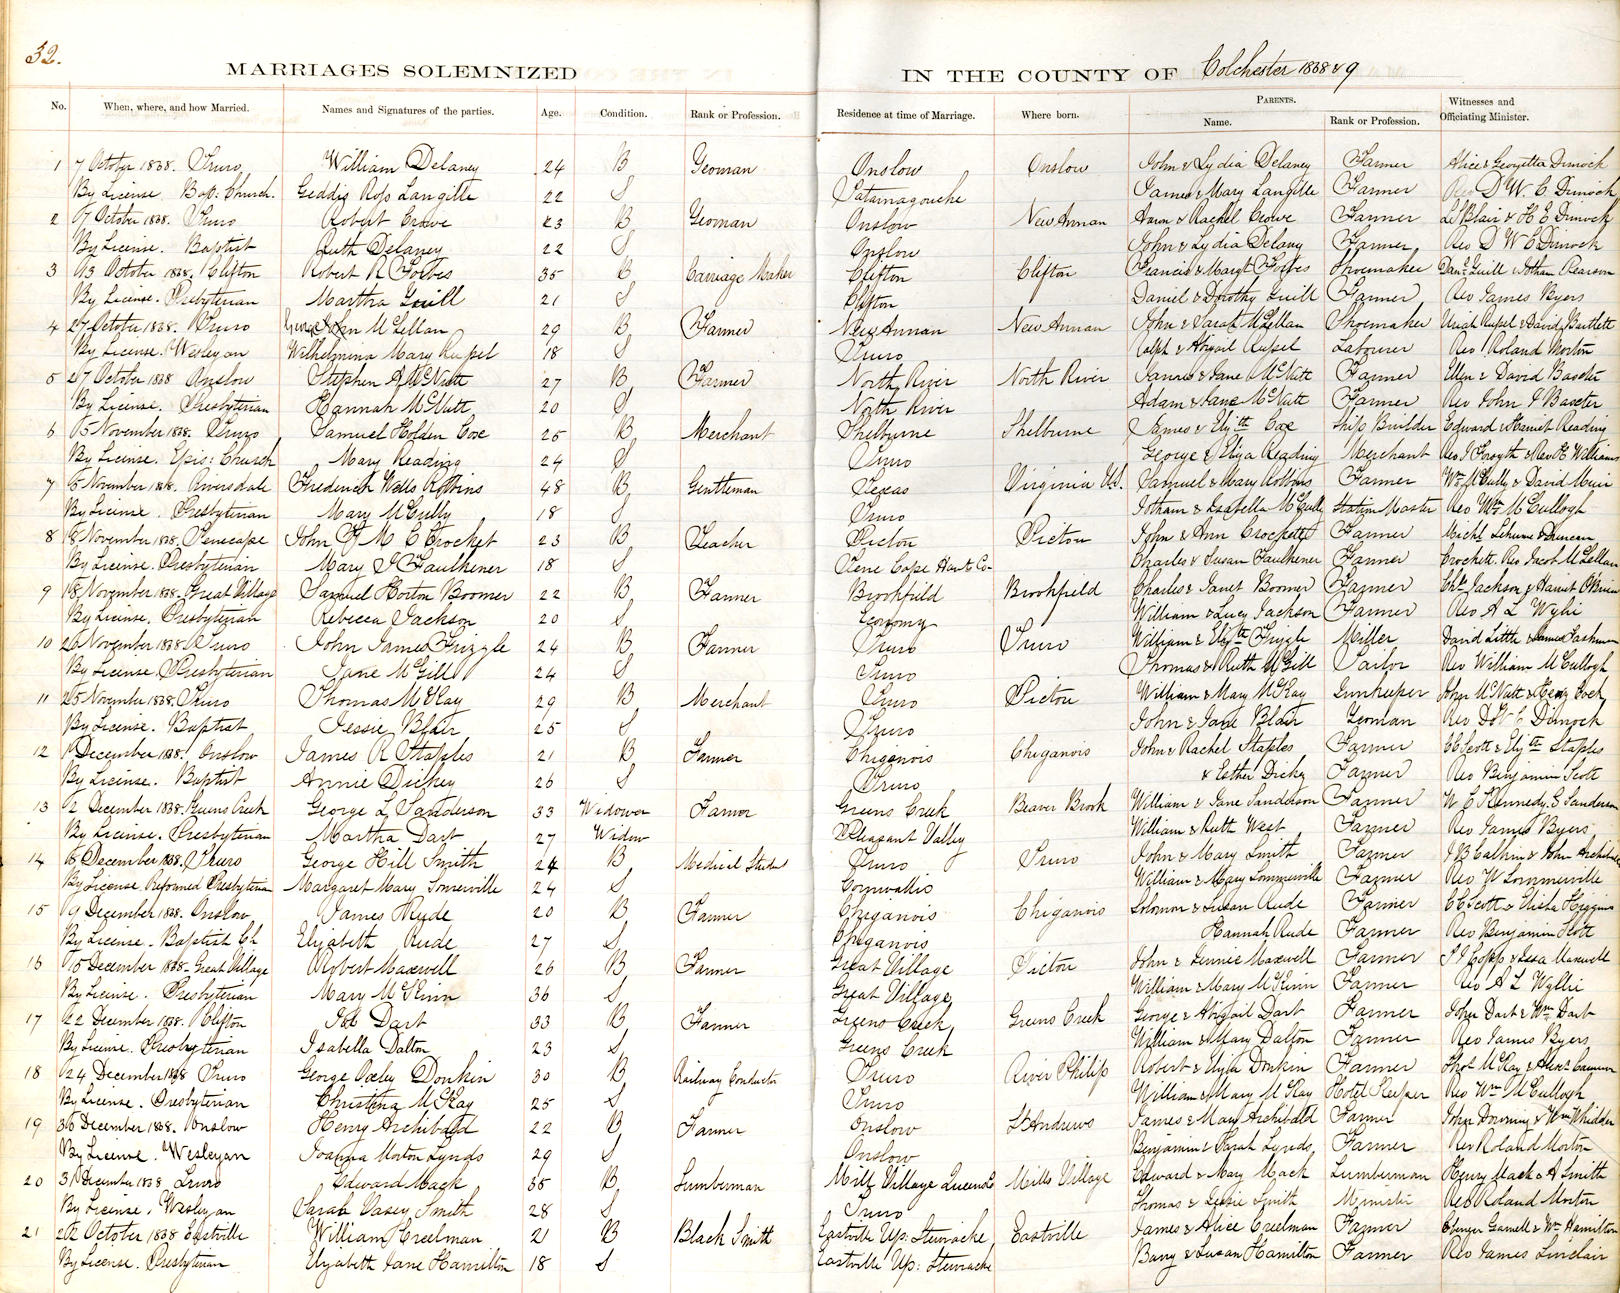 32.
MARRIAGES SOLEMNIZED IN THE COUNTY OF Colchester 1868 & 9
No. When, where, and how Married. Names and Signatures of the parties. Age. Condition. Rank or Profession. Residence at time of Marriage. Where born. PARENTS. Name. Rank or Profession. Witnesses and Officiating Minister.
1 7 October 1868. Truro William Delaney 24 B Yeoman Onslow Onslow John & Lydia Delaney Farmer Alice & Georgetta Dimock
By License Bap: Church. Geddis Ross Langille 22 S Tatamagouche James & Mary Langille Farmer Rev D W C Dimock
2 7 October 1868. Truro Robert Crowe 23 B Yeoman Onslow New Annan Aaron & Rachel Crowe Farmer Blair & H E Dimock
By License. Baptist Ruth Delaney 22 S Onslow John & Lydia Delany Farmer Rev D W C Dimock
3 13 October 1868. Clifton Robert R Forbes 35 B Carriage Maker Clifton Clifton Francis & Margt Forbes Shoemaker Danl Guill & Jotham Pearson
By License. Presbyterian Martha Guill 21 S Clifton Daniel & Dorothy Guill Farmer Rev James Byers
4 27 October 1868. Truro George John McLellan 29 B Farmer New Annan New Annan John & Sarah McLellan Shoemaker Uriah Rupel & David Bartlett
By License. Wesleyan Wilhelmina Mary Rupel 18 S Truro Ralph & Abigail Rupel Labourer Rev Roland Morton
5 27 October 1868 Onslow Stephen A McNutt 27 B Farmer North River North River James & Jane McNutt Farmer Ellen & David Baxter
By License. Presbyterian Hannah McNutt 20 S North River Adam & Jane McNutt Farmer Rev John I Baxter
6 5 November 1868. Truro Samuel Holden Cox 25 B Merchant Shelburne Shelburne James & Elizth Cox Ship Builder Edward & Harriet Reading
By License. Epis: Church Mary Reading 24 S Truro George & Eliza Reading Merchant Rev J Forsyth & Rev Williams
7 5 November 1868. Riversdale Frederick Wells Robbins 48 B Gentleman Texas Virginia U.S. Samuel & Mary Robbins Farmer Wm McCully & David Muir
By License. Presbyterian Mary McCully 18 S Truro Jotham & Isabella McCully Station Master Rev Wm McCullogh
8 November 1868. Tenecape John McC Crocket 23 B Teacher Pictou Pictou John & Ann Crockett Farmer Michl & Duncan
By License. Presbyterian Mary J Faulkener 18 S Tene Cape Hants Co. Charles & Susan Faulkener Farmer Crockett. Rev Jacob McLellan
9 18 November 1868. Great Village Samuel Horton Boomer 22 B Farmer Brookfield Brookfield Charles & Janet Boomer Farmer Chs Jackson & Harriet O'Brien
By License. Presbyterian Rebecca Jackson 20 S Economy William & Lucy Jackson Farmer Rev A L Wylie
10 26 November 1868 Truro John James Frizzle 24 B Farmer Truro Truro William & Elizth Frizzle Miller David Little & James
By License. Presbyterian Jane McGill 24 S Truro Thomas & Ruth McGill Tailor Rev William McCullogh
11 25 November 1868. Truro Thomas McKay 29 B Merchant Truro Pictou William & Mary McKay Innkeeper John McNutt &
By License. Baptist Jessie Blair 25 S Truro John & Jane Blair Yeoman Rev D W C Dimock
12 1 December 1868. Onslow James R Staples 21 B Farmer Chiganois Chiganois John & Rachel Staples Farmer C C Scott & Elizth Staples
By License. Baptist Annie Dickey 26 S Truro & Esther Dicky Farmer Rev Benjamin Scott
13 2 December 1868. Greens Creek George L Sanderson 33 Widower Farmer Greens Creek Beaver Brook William & Jane Sanderson Farmer W C Kennedy, E Sanderson
By License. Presbyterian Martha Dart 27 Widow Pleasant Valley William & Ruth West Farmer Rev James Byers
14 8 December 1868. Truro George Hill Smith 24 B Medical Student Truro Truro John & Mary Smith Farmer J B Calkin & John Archibald
By License. Reformed Presbyterian Margaret Mary Somerville 24 S Cornwallis William & Mary Sommerville Farmer Rev W Sommerville
15 9 December 1868. Onslow James Rude 20 B Farmer Chiganois Chiganois Solomon & Susan Rude Farmer C C Scott & Elisha Higgins
By License. Baptist Ch Elizabeth Rude 27 S Chiganois Hannah Rude Farmer Rev Benjamin Scott
16 15 December 1868. Great Village Robert Maxwell 26 B Farmer Great Village Pictou John & Jennie Maxwell Farmer Copp & Maxwell
By License. Presbyterian Mary McKinn 36 S Great Village William & Mary McKinn Farmer Rev A L Wyllie
17 22 December 1868. Clifton Job Dart 33 B Farmer Greens Creek Greens Creek George & Abigail Dart Farmer John Dart & Wm Dart
By License. Presbyterian Isabella Dalton 23 S Greens Creek William & Mary Dalton Farmer Rev James Byers
18 24 December 1868 Truro George Oxley Donkin 30 B Railway Conductor Truro River Philip Robert & Eliza Donkin Farmer Thos McKay & Alexr Cameron
By License. Presbyterian Christina McKay 25 S Truro William & Mary McKay Hotel Keeper Rev Wm McCullogh
19 30 December 1868. Onslow Henry Archibald 22 B Farmer Onslow St Andrews James & Mary Archibald Farmer John Downing & Wm Whidden
By License. Wesleyan Joanna Morton Lynds 29 S Onslow Benjamin & Sarah Lynds Farmer Rev Roland Morton
20 31 December 1868 Truro Edward Mack 35 B Lumberman Mill Village Queens Co Mills Village Edward & Mary Mack Lumberman Henry Mack & A Smith
By License. Wesleyan Sarah Smith 28 S Truro Thomas & Smith Minister Rev Roland Morton
21 22 October 1868 Eastville William Creelman 21 B Black Smith Eastville Up: Stewiacke Eastville James & Alice Creelman Farmer Ebenezer Gammell & Wm Hamilton
By License. Presbyterian Elizabeth Jane Hamilton 18 S Eastville Up: Stewiacke Barry & Susan Hamilton Farmer Rev James Sinclair